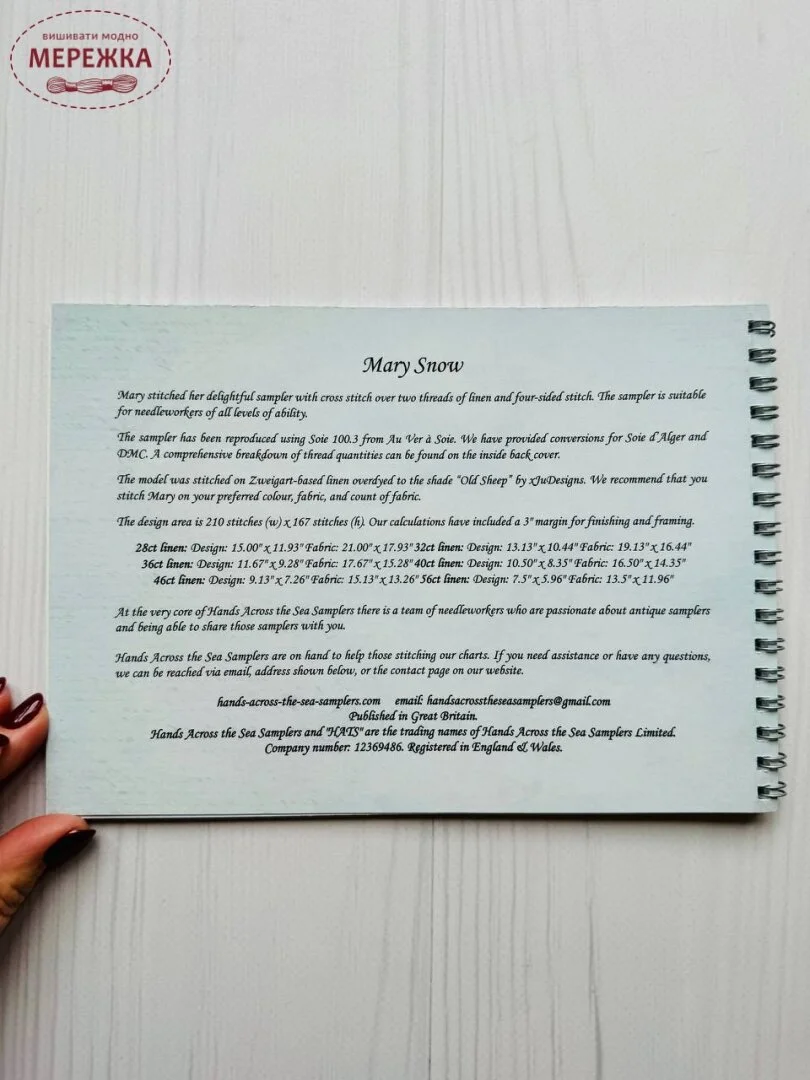 вишивати модно
МЕРЕЖКА
Mary Snow
Mary stitched her delightful sampler with cross stitch over two threads of linen and four-sided stitch. The sampler is suitable
for needleworkers of all levels of ability.
The sampler has been reproduced using Soie 100.3 from Au Ver à Soie. We have provided conversions for Soie d'Alger and
DMC. A comprehensive breakdown of thread quantities can be found on the inside back cover.
The model was stitched on Zweigart-based linen overdyed to the shade "Old Sheep" by xJuDesigns. We recommend that you
stitch Mary on your preferred colour, fabric, and count of fabric.
The design area is 210 stitches (w) x 167 stitches (h). Our calculations have included a 3" margin for finishing and framing.
28ct linen: Design: 15.00" x 11.93" Fabric: 21.00" x 17.93" 32ct linen: Design: 13.13" x 10.44" Fabric: 19.13" x 16.44"
36ct linen: Design: 11.67" x 9.28" Fabric: 17.67" x 15.28" 40ct linen: Design: 10.50" x 8.35" Fabric: 16.50" x 14.35"
46ct linen: Design: 9.13" x 7.26" Fabric: 15.13" x 13.26" 56ct linen: Design: 7.5" x 5.96" Fabric: 13.5" x 11.96"
At the very core of Hands Across the Sea Samplers there is a team of needleworkers who are passionate about antique samplers
and being able to share those samplers with you.
Hands Across the Sea Samplers are on hand to help those stitching our charts. If you need assistance or have any questions,
we can be reached via email, address shown below, or the contact page on our website.
hands-across-the-sea-samplers.com email: handsacrosstheseasamplers@gmail.com
Published in Great Britain.
Hands Across the Sea Samplers and "HATS" are the trading names of Hands Across the Sea Samplers Limited.
Company number: 12369486. Registered in England & Wales.